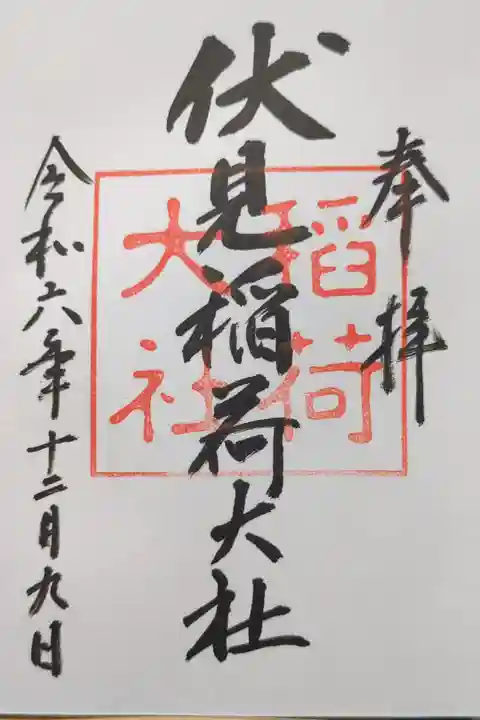 奉拝
伏見稲荷大社
稲荷
大社
令和六年十二月九日